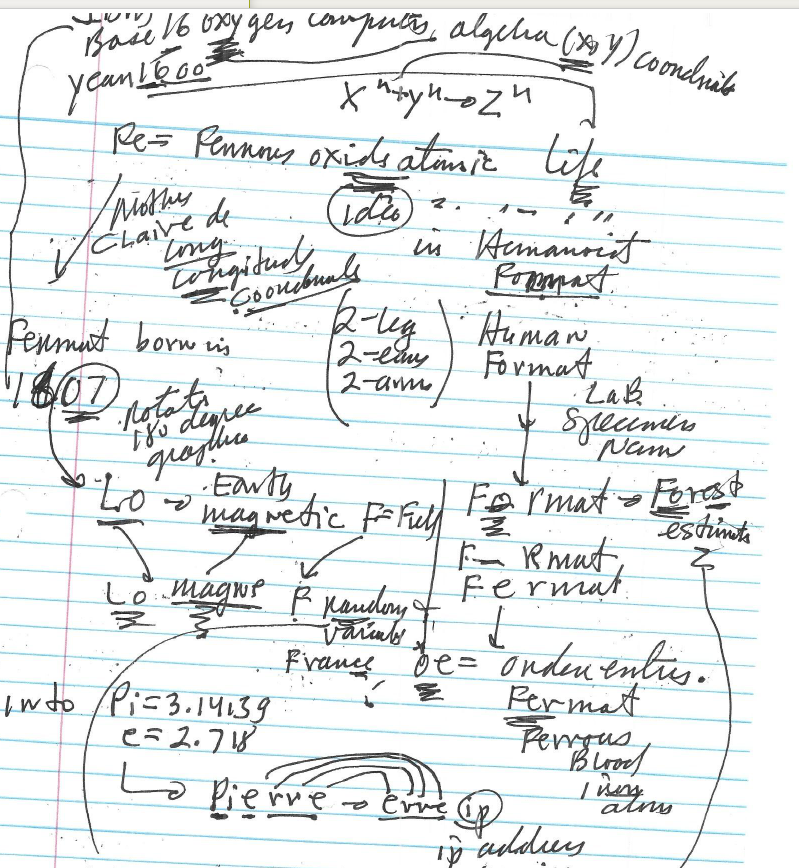 Base 16 oxygen computers, algebra (x,y) coordinats
year 1600
X^n + y^n → Z^n
Re = Ferrous oxids atomic Life
Mother
Claire de
Long
Longitude
Coordinats
idea
in Humanoid
Format
2-leg
2-ears
2-arms
Human
Format
Fermat born in
1607
rotate
180 degree
graphics
LaB
Specimen
Name
LO → Earth
magnetic F = Field
Format → Forest
estimate
Lo magne F random
variable
F— Rmat
Fermat
France
oe = order entries.
into Pi = 3.14139
e = 2.718
Fermat
Ferrous
Blood
iron
atoms
Pierre → erre ip
ip address